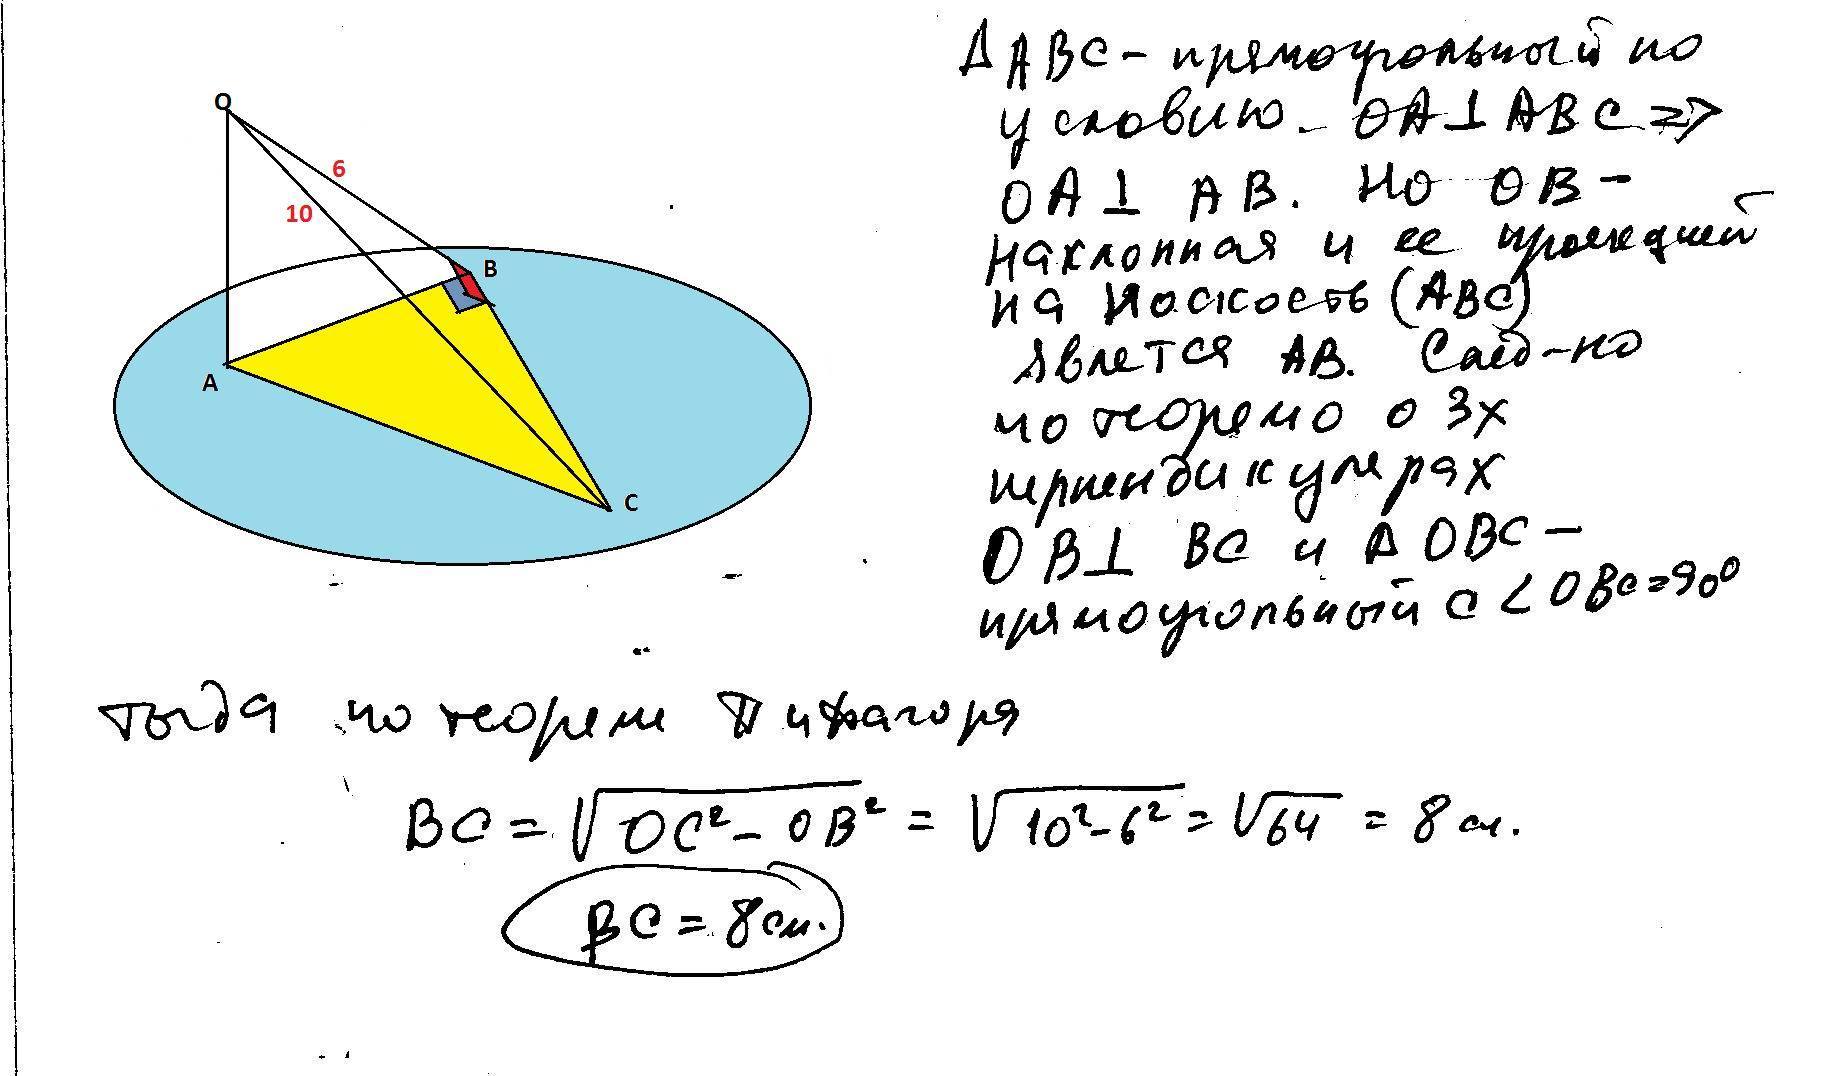 O
6
10
B
A
C
Δ ABC - прямоугольный по
условию. OA⊥ABC =>
OA⊥ AB. Но OB -
наклонная и ее проекцией
на плоскость (ABC)
явлется AB. След-но
по теоремо о 3х
перпендикулярах
OB⊥ BC и Δ OBC -
прямоугольный с <OBC=90⁰
тогда по теореме Пифагора
BC = √OC² - OB² = √10²-6² = √64 = 8 см.
BC = 8 см.